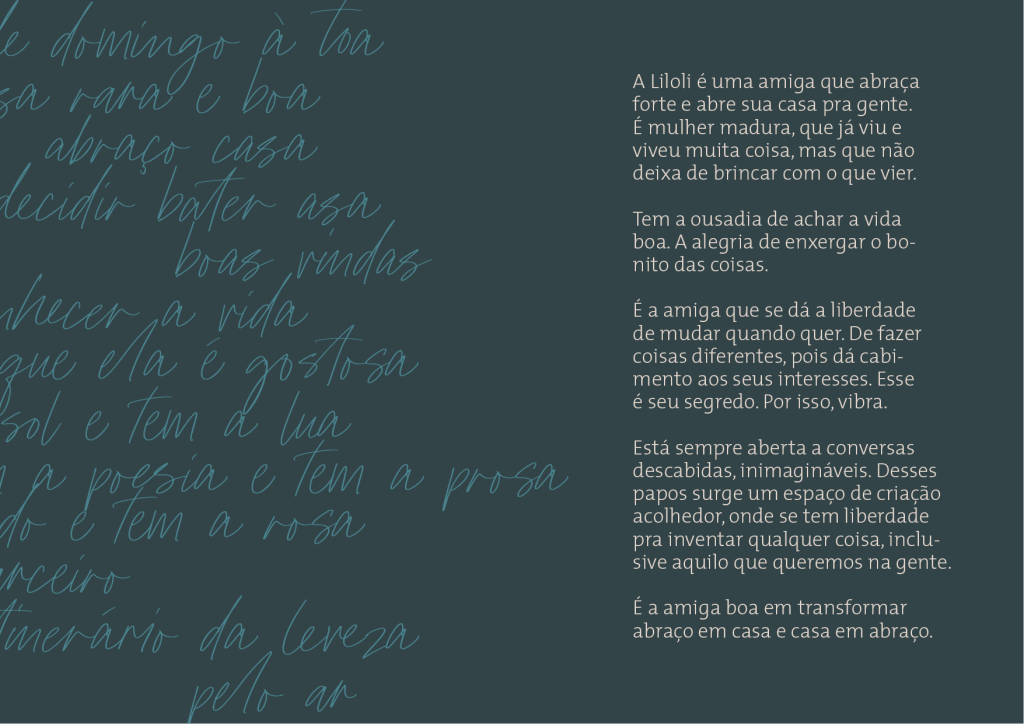 domingo à toa
rara e boa
abraço casa
decidir bater asa
boas vindas
a vida
que ela é gostosa
sol e tem a lua
a poesia e tem a prosa
e tem a rosa
da leveza
pelo ar
A Liloli é uma amiga que abraça
forte e abre sua casa pra gente.
É mulher madura, que já viu e
viveu muita coisa, mas que não
deixa de brincar com o que vier.
Tem a ousadia de achar a vida
boa. A alegria de enxergar o bo-
nito das coisas.
É a amiga que se dá a liberdade
de mudar quando quer. De fazer
coisas diferentes, pois dá cabi-
mento aos seus interesses. Esse
é seu segredo. Por isso, vibra.
Está sempre aberta a conversas
descabidas, inimagináveis. Desses
papos surge um espaço de criação
acolhedor, onde se tem liberdade
pra inventar qualquer coisa, inclu-
sive aquilo que queremos na gente.
É a amiga boa em transformar
abraço em casa e casa em abraço.